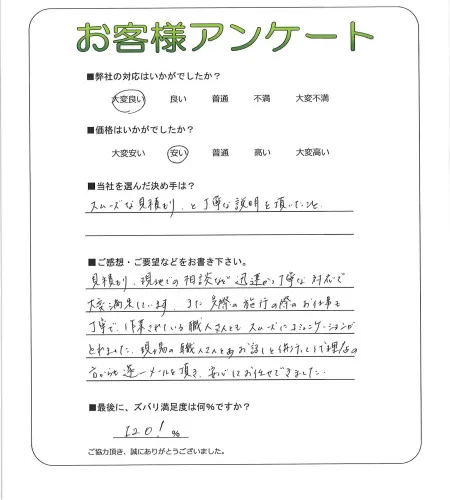 お客様アンケート
■弊社の対応はいかがでしたか?
大変良い 良い 普通 不満 大変不満
■価格はいかがでしたか?
大変安い 安い 普通 高い 大変高い
■当社を選んだ決め手は?
スムーズな見積もり、と丁寧な説明を頂いたこと
■ご感想・ご要望などをお書き下さい。
見積もり、現地での相談など迅速かつ丁寧な対応で
大変満足しています。また実際の施行の際のお仕事も
丁寧で、作業されている職人さんともスムーズにコミュニケーションが
とれました。現場の職人さんとお話しと並行して
方からも逐一メールを頂き、安心してお任せできました。
■最後に、ズバリ満足度は何%ですか?
120! %
ご協力頂き、誠にありがとうございました。